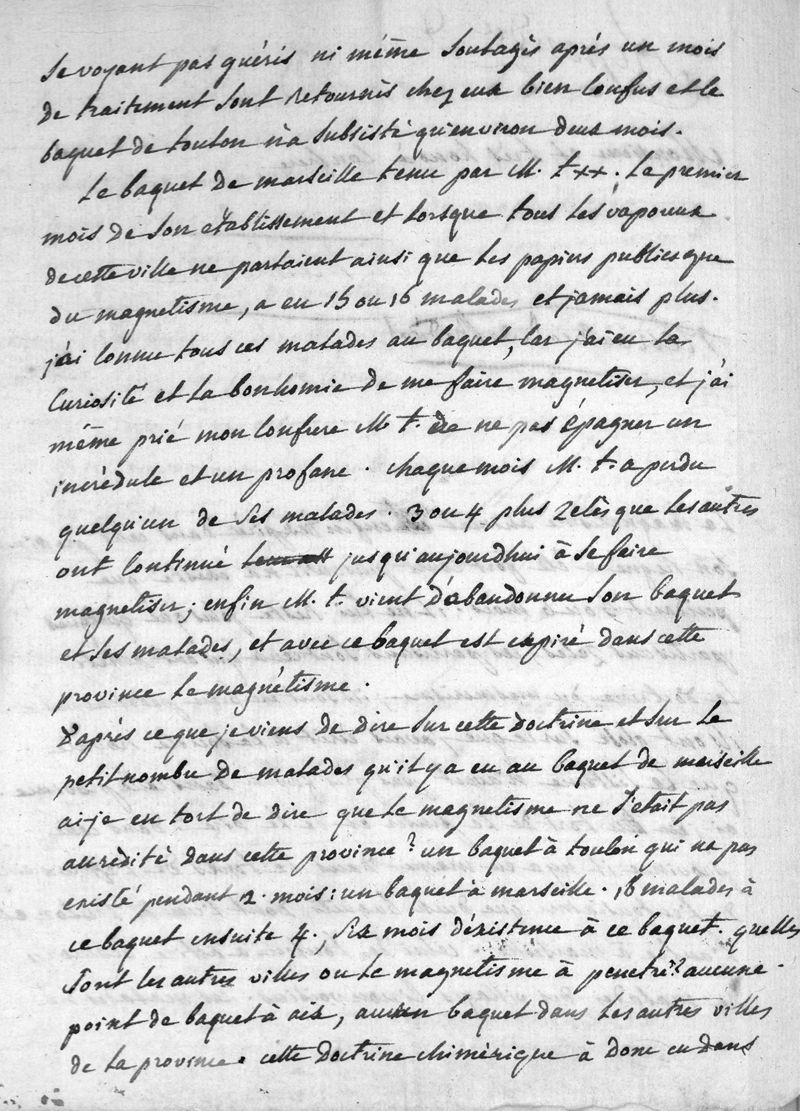 se voyant pas guéris ni même soulagés après un mois
de traitement sont retournés chez eux bien confus et le
baquet de toulon n'a subsisté qu'environ deux mois.
Le baquet de marseille tenu par M. t××. Le premier
mois de son etablissement et lorsque tous les vaporeux
de cette ville ne parlaient ainsi que les papiers publics que
du magnetisme, a eu 15 ou 16 malades et jamais plus.
j'ai connu tous ces malades au baquet, car j'ai eu la
curiosité et la bonhomie de me faire magnetiser, et j'ai
même prié mon confrere M t. de ne pas épagner un
incrédule et un profane. chaque mois M. t. a perdu
quelqu'un de ses malades. 3 ou 4 plus zelés que les autres
ont continué jusqu'aujourdhui à se faire
magnetiser; enfin M. t. vient d'abandonner son baquet
et ses malades, et avec ce baquet est expiré dans cette
province le magnétisme.
D'après ce que je viens de dire sur cette doctrine et sur le
petit nombre de malades qu'il y a eu au baquet de marseille
ai-je eu tort de dire que le magnetisme ne s'était pas
accrédité dans cette province? un baquet à toulon qui na pas
existé pendant 2. mois: un baquet à marseille. 16 malades à
ce baquet ensuite 4., six mois d'éxistence à ce baquet. quelles
sont les autres villes ou le magnetisme à penetré? aucune.
point de baquet à aix, aucun baquet dans les autres villes
de la province. cette doctrine chimérique à donc eu dans